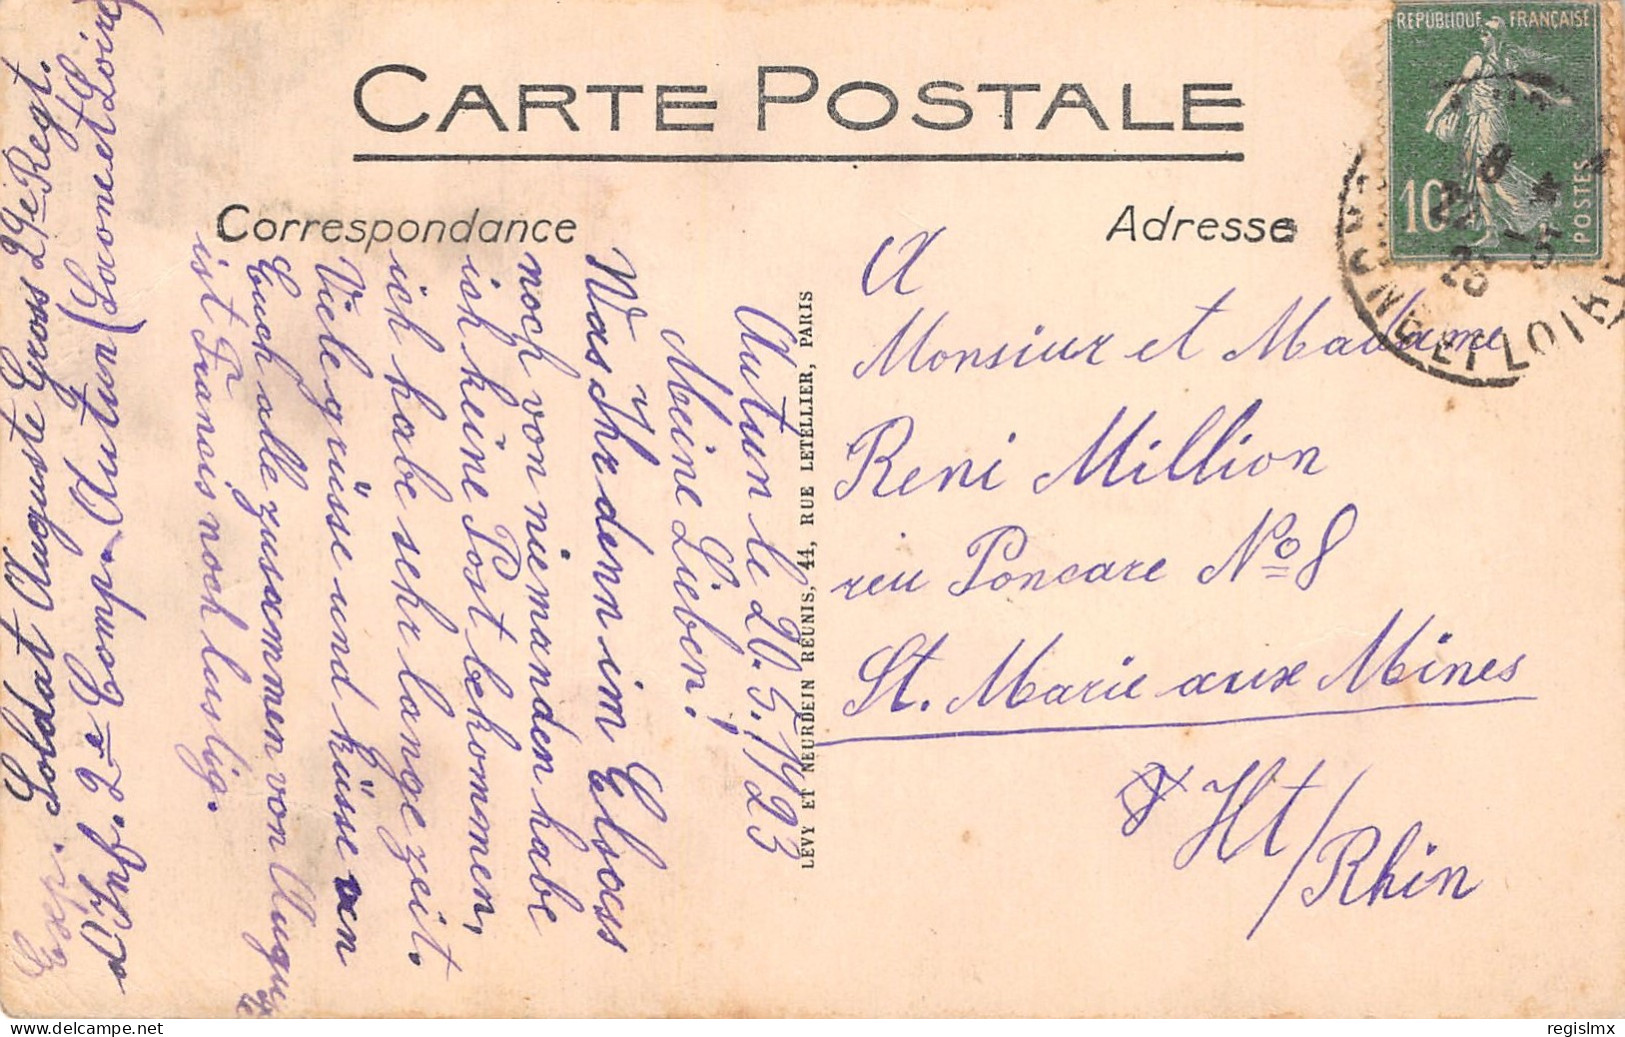 CARTE POSTALE
Correspondance
Adresse
RÉPUBLIQUE FRANÇAISE
10
POSTES
LEVY ET NEURDEIN REUNIS, 44, RUE LETELLIER, PARIS
Autun le 20.5.1923
Meine Lieben!
Was ihr denn im Elsass
noch von niemanden habe
ich keine Post bekommen,
ich habe sehr lange zeit.
Viele grüsse und küsse an
Euch alle zusammen von August
ist Francis noch lustig.
Exp. Soldat Auguste Gross 29e Regt.
d'Inf. 2e Comp. Autun (Saone et Loire)
A
Monsiur et Madame
Reni Million
reu Poncare No 8
St. Marie aux Mines
Ht/Rhin
SAONE-ET-LOIRE
regislmx